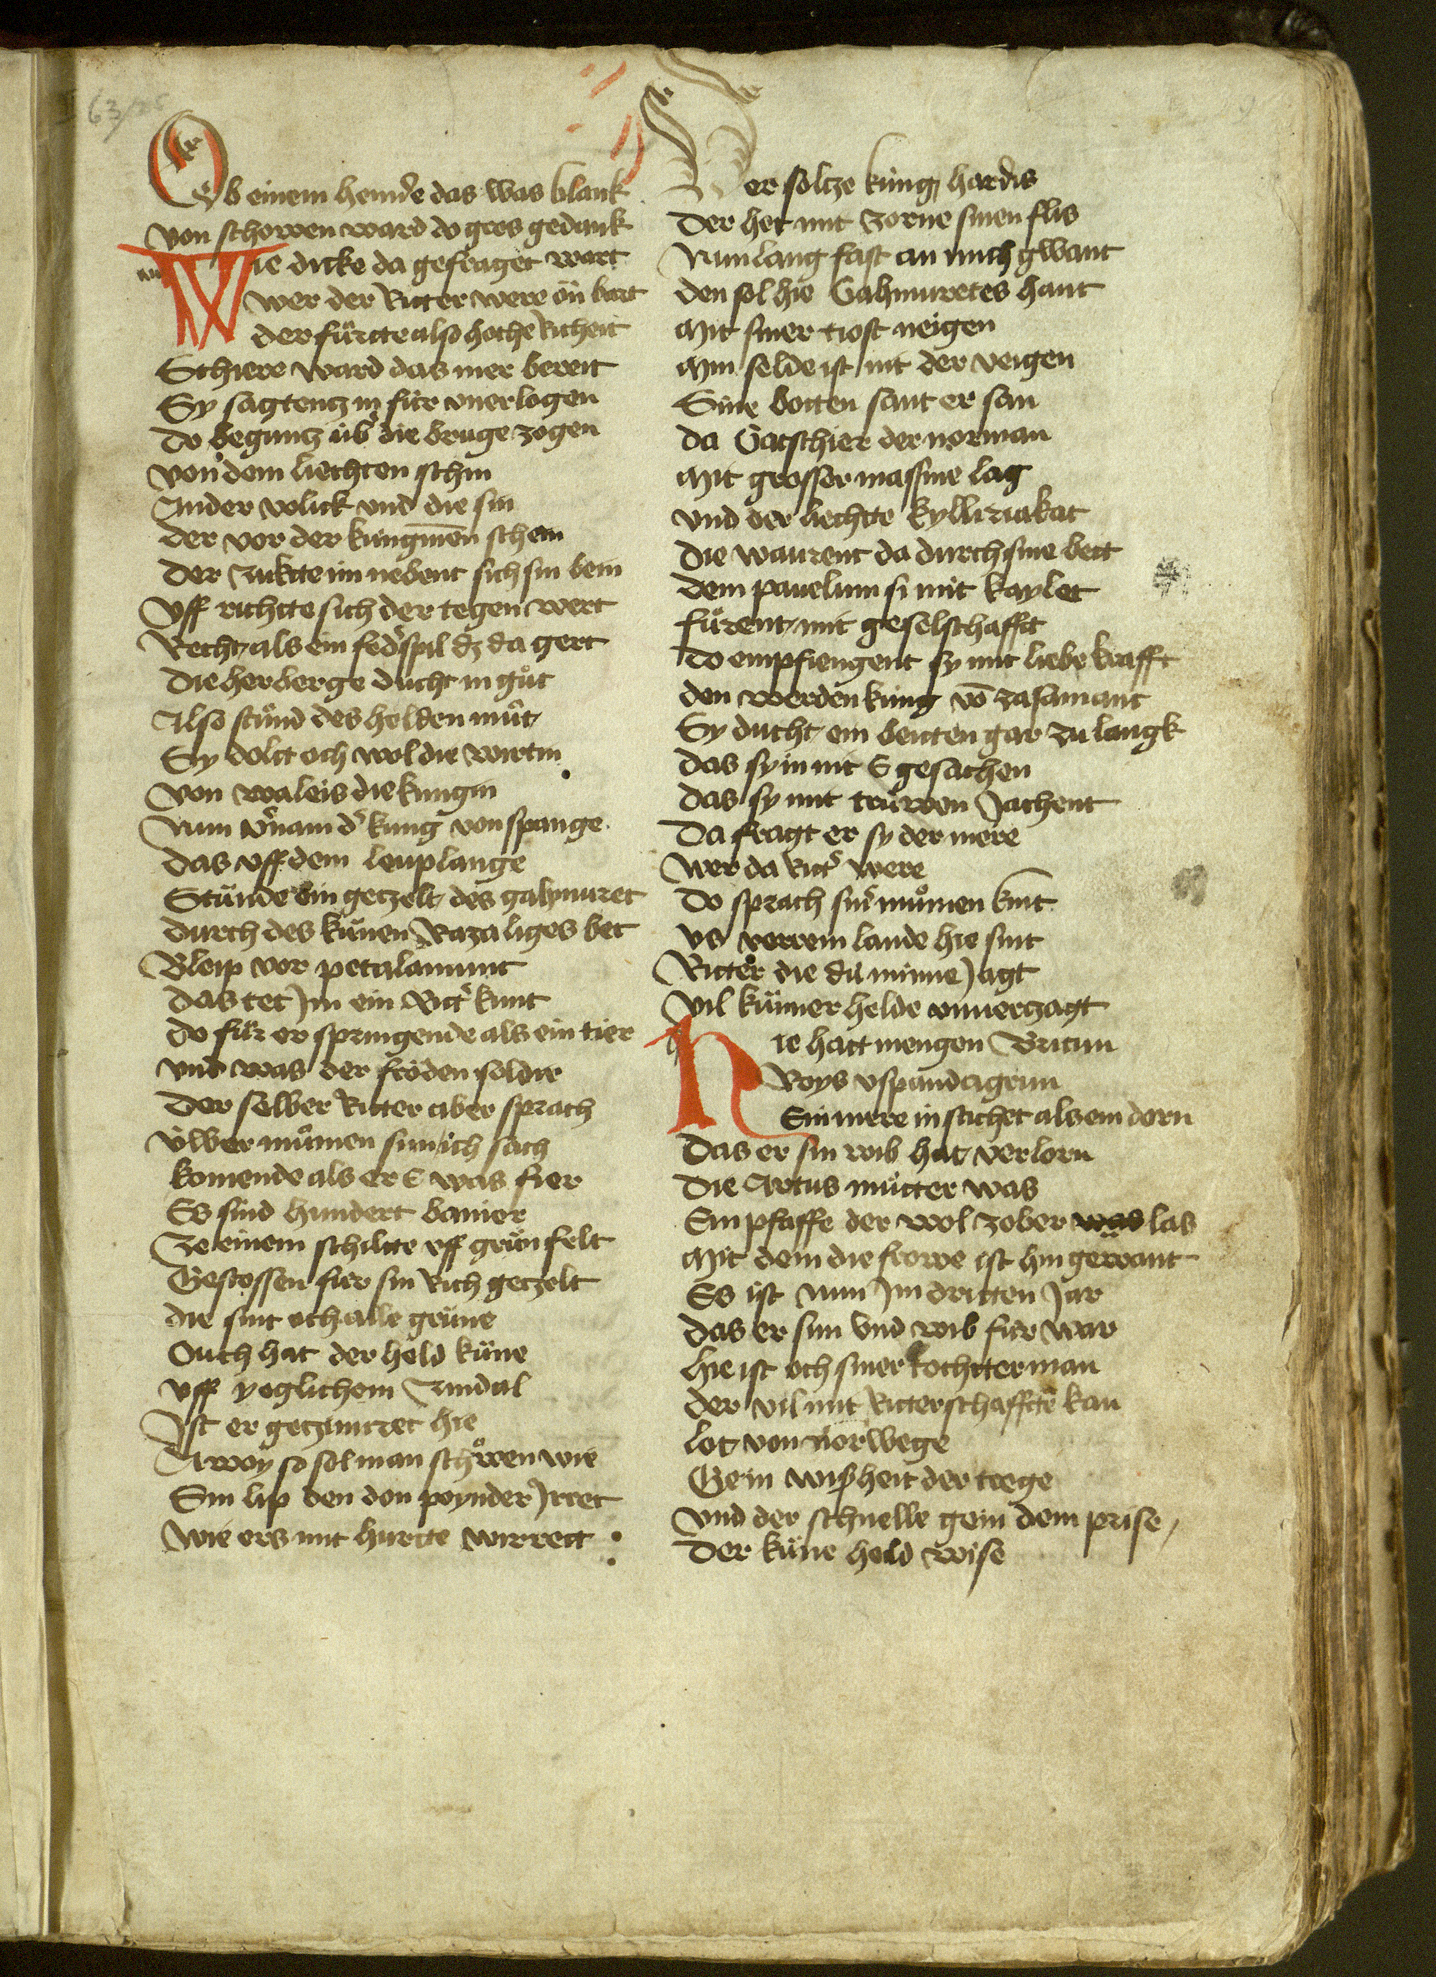 63/25
Ob einem hemde das was blank
von schowen ward do gros gedank
Wie dicke da gefraget wart
wer der Ritter were on bart
der fürtte also hoche richeit
Schiere ward das mer bereit
Sy sagtentz in für vnerlogen
do beguntz úb die bruge zogen
von dem liechten schin
Ander volick vnd die sin
der vor der küngin schein
Der zuktte im nebent sich sin bein
Vff richtte sich der tegen wert
Recht als ein fedspil dz da gert
Die herberge ducht in guͦt
Also stuͦnd des helden muͦt
Sy dolt och wol die wirtin
von waleis die kungin
Nun vernam d kung von spange
das vff dem leuplange
Stuͤnde ein getzelt des gahmuret
durch des kuͤnen Razaliges bet
Bleip vor petalamunt
das tet Jm ein Rittʼ kunt
do fuͦr er springende als ein tier
vnd was der froͤden soldir
Der selber Ritter aber sprach
v́wer muͦmen sun ich sach
komende als er e was fier
Es sind hundert banier
Ze einem schiltte vff gruͤn felt
Gestossen fúr sin Rich getzelt
die sint och alle gruͤne
Ouch hat der held kuͤne
vff yeglichem Zindal
Ist er getzimiret hie
Awoy so sol man schoͧwen wie
Sin lip den don poynder Jrret
wie ers mit hurtte wirrett
Der soltze kúng hardis
Der het mit zorne sinen flis
Nun lang fast an mich gwant
den sol hie Gahmuretes hant
Mit siner tiost neigen
Min selde ist nit der veigen
Sine botten sant er san
da Gatschier der norman
Mit grosser massine lag
vnd der liechtte kylliriakat
die waurent da durch sine bett
dem pauelun si mit kaylet
fuͦrent mit geselschafft
do empfiengent sy mit liebe krafft
den werden kúng võ zasamant
Sy ducht ein beitten gar zu langk
das sy in nit E gesachen
das sy mit trúwen Jachent
Da fragt er sy der mere
wer da Rittʼ were
do sprach sinʼ muͦmen kint
vs verrem lande hie sint
Ritter die dú minne Jagt
vil kuͤner helde vnuerzagt
Hie hatt mengen Britun
Roys vspandagrun
Sin mere in stichet als ein dorn
Das er sin wib hat verlorn
die Artus muͦtter was
Ein pfaffe der wol zober was las
Mit dem die frowe ist hin gewant
Es ist nun Jm dritten Jar
das er sun vnd wib fúr war
hie ist och siner tochtter man
der vil mit Ritterschafftte kan
lot von norwege
Gein wißheit der trege
vnd der schnelle gein dem prise
Der kuͤne held wise